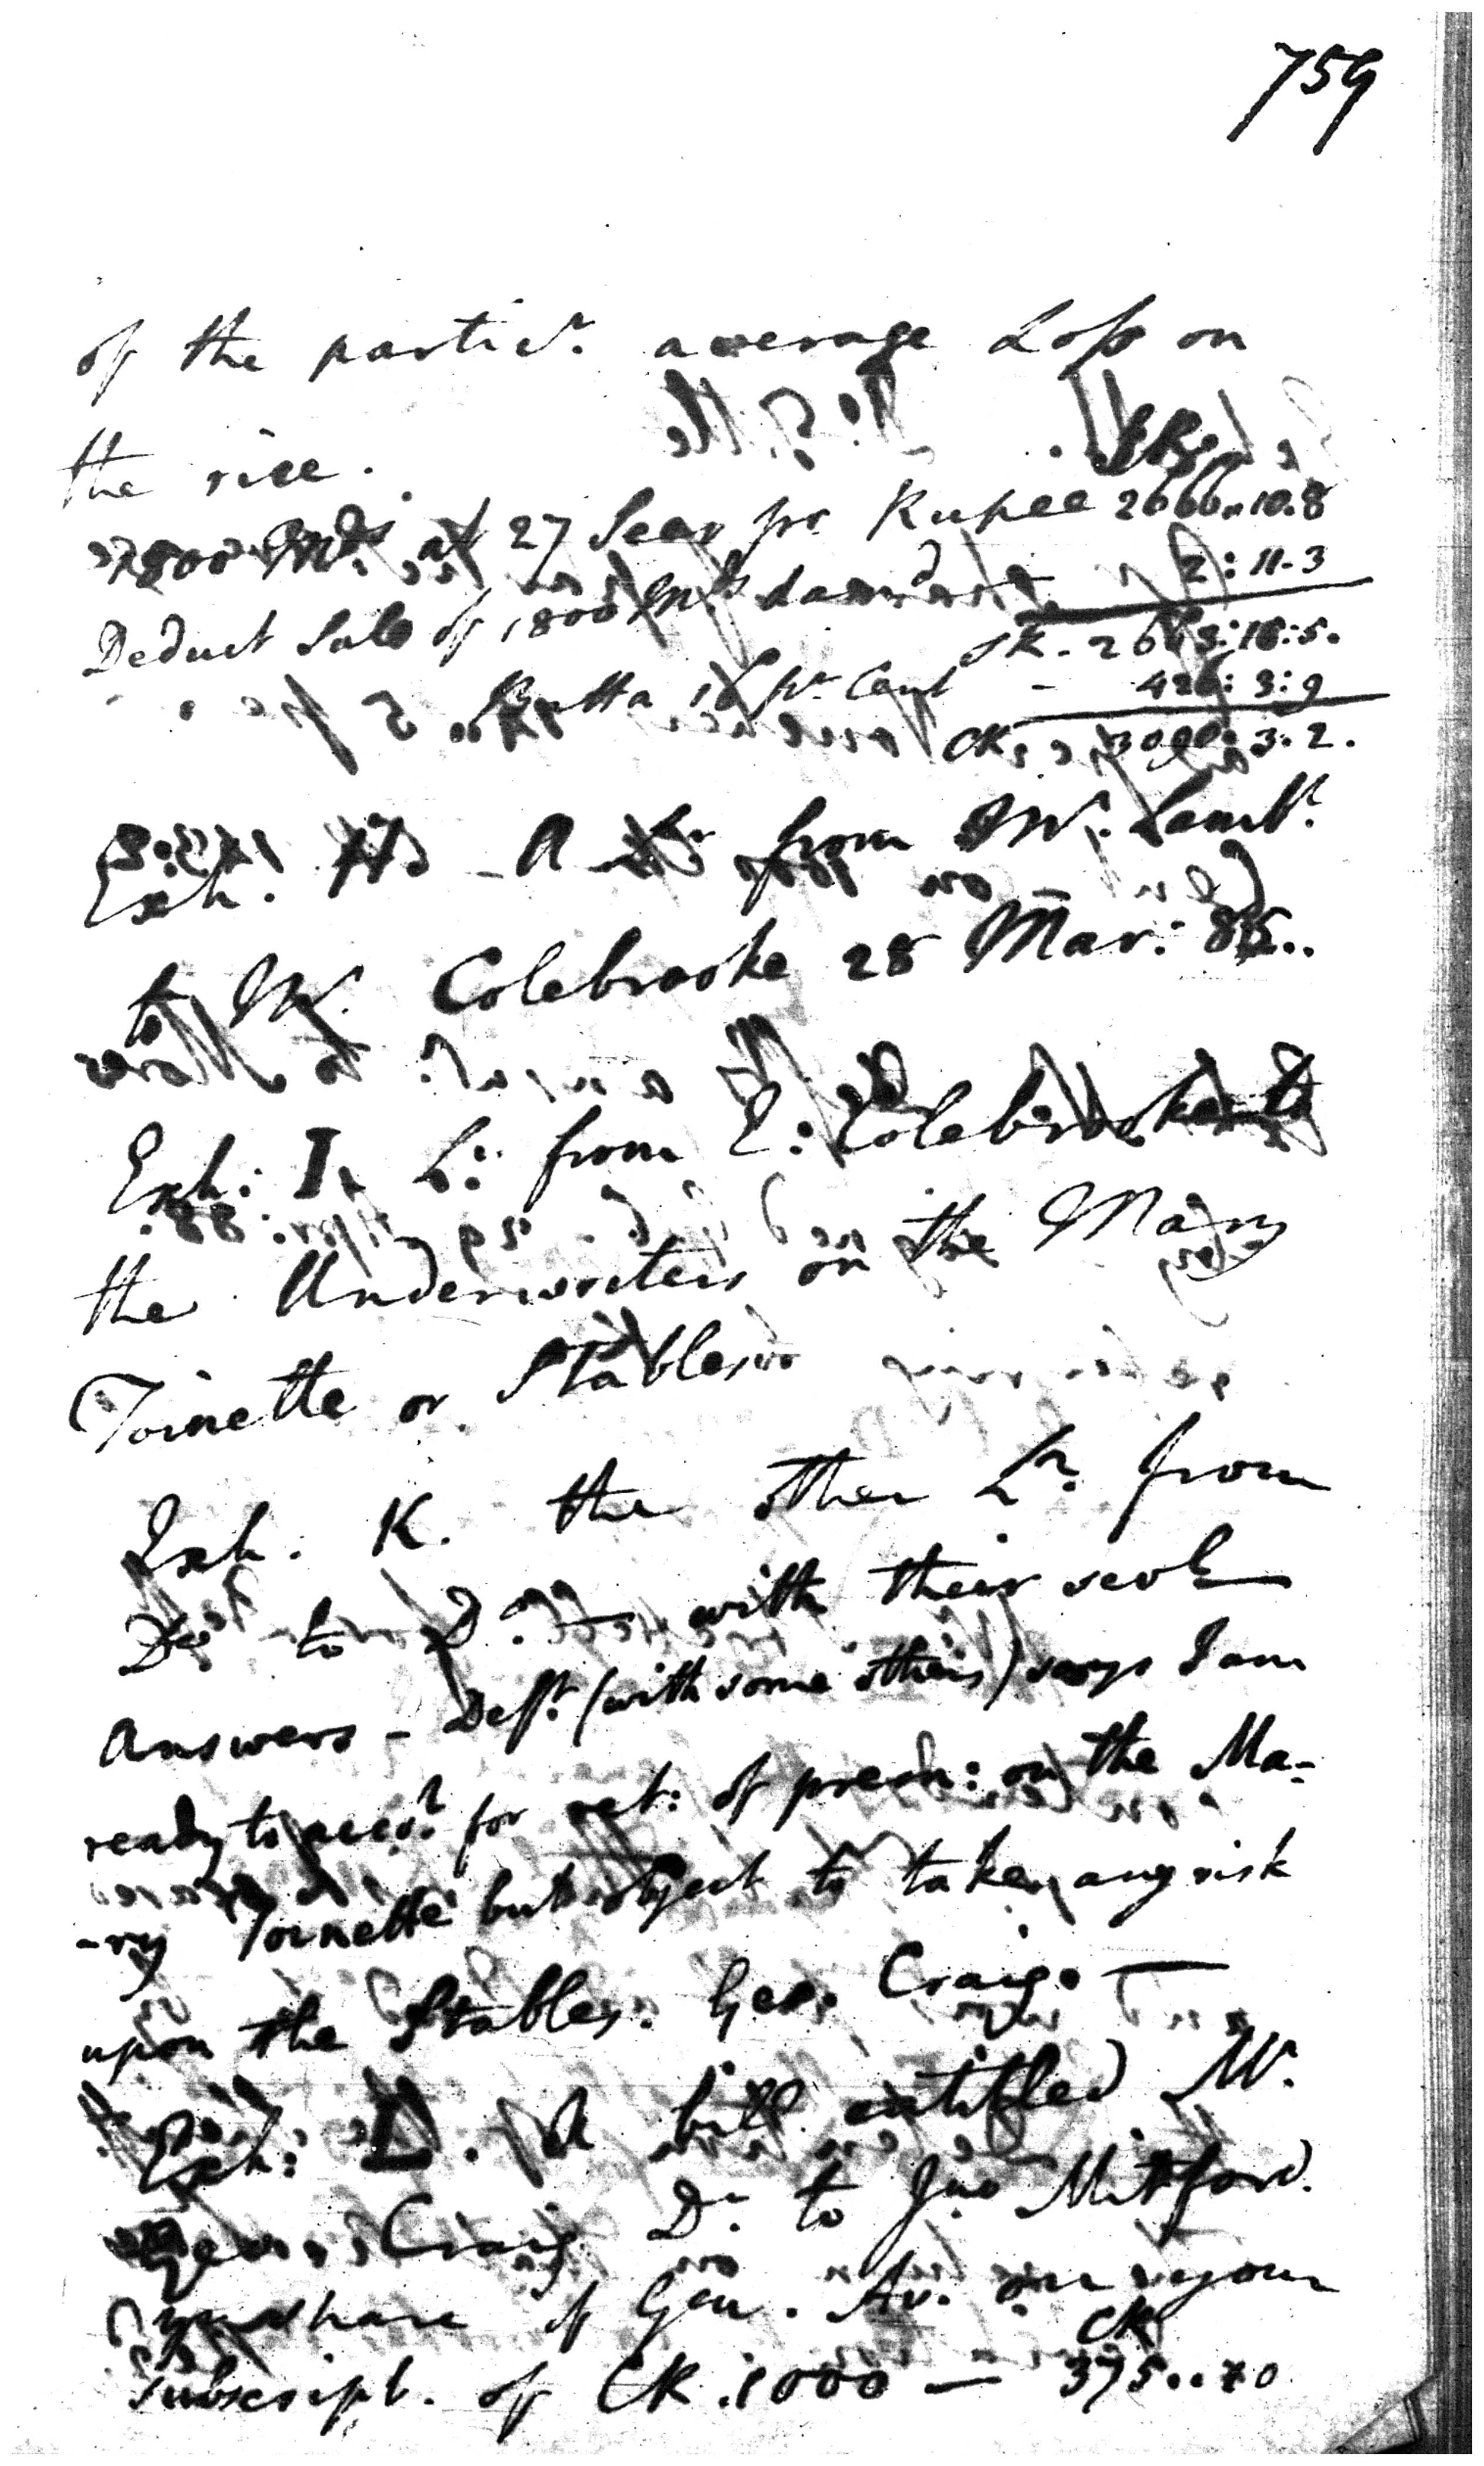 759
of the particr. average Loss on
the rice.
1800 Mds. at 27 Seer pr. Rupee 2666..10.8
Deduct Sale of 1800 Mds damd 2:11.3
SR. 2663:15:5.
Batta 16 pr Cent - 426: 3:9
CR. 3090: 3.2.
Exh. H - A Lr from Mr. Lambt.
to Mr. Colebrooke 28 Mar: 85..
Exh: I. Lr. from E: Colebrooke to
the Underwriters on the Mary
Toinette or Stables
Exh. K. the other Lr. from
Do to Do. — with their sevl
Answers - Defft. (with some others) says I am
ready to accot. for ret: of prem: on the Ma-
-ry Toinette but object to take any risk
upon the Stables. Geo. Craig. —
Exh: L. A bill entitled Mr.
Geo. Craig Dr. to Jno Mitford.
your share of Gen. Av. on your
CR
Subscript. of CR. 1000 — 375..